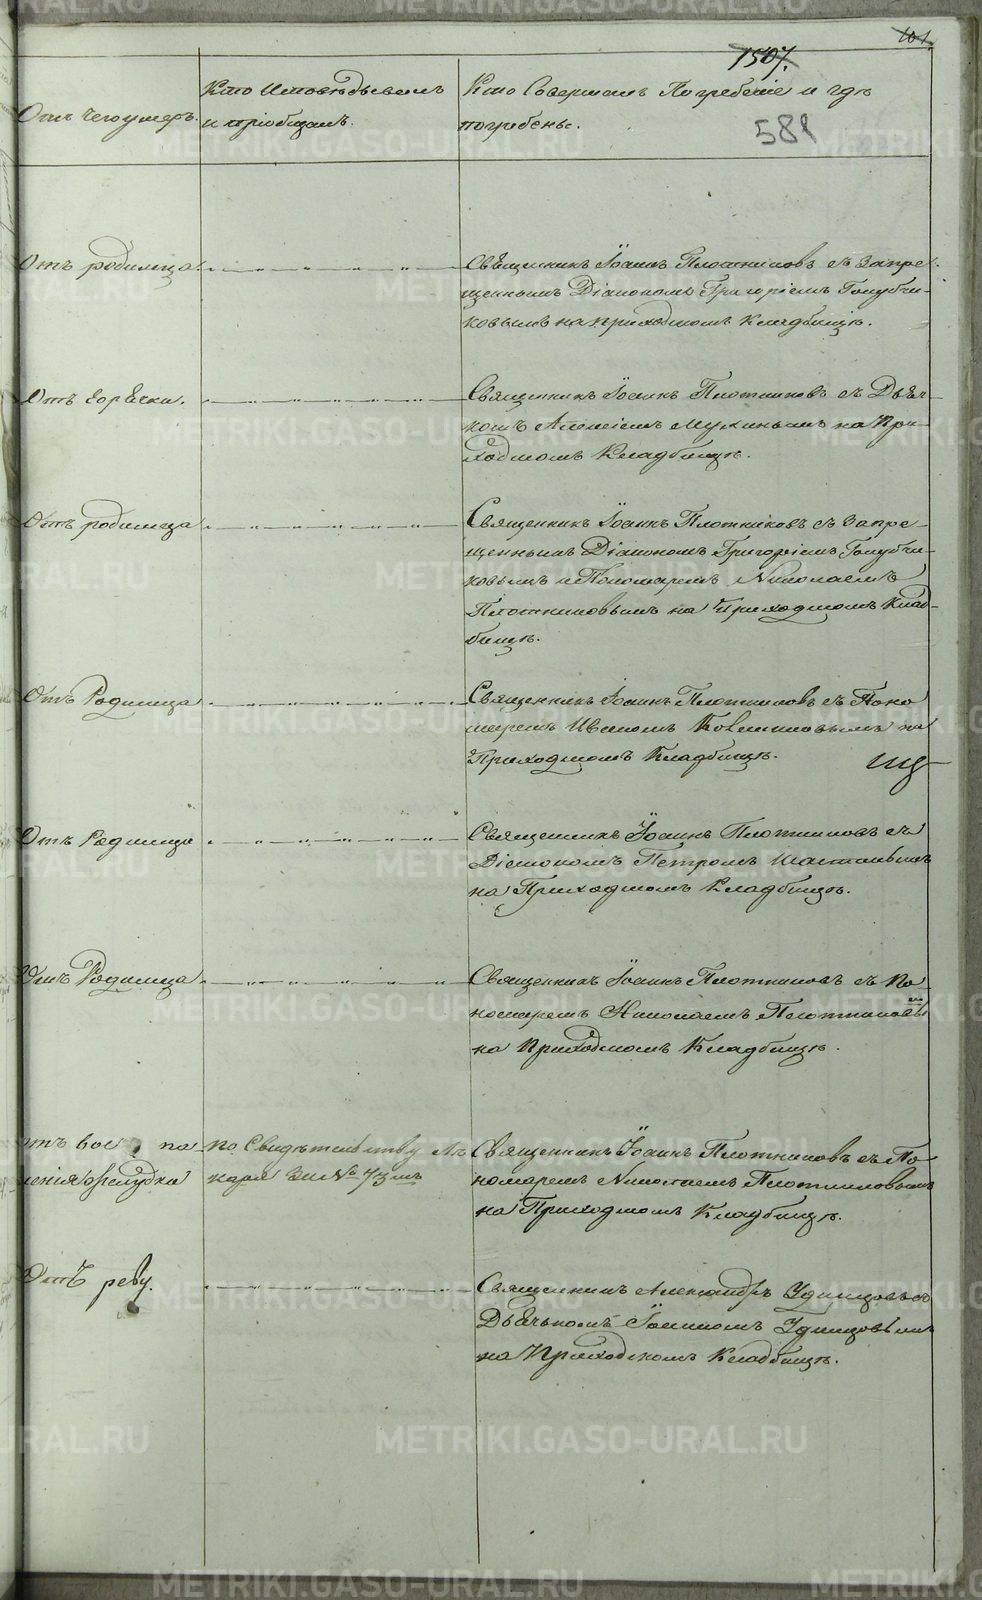 101.
1507.
581
Отъ чего умеръ.
Кто Исповѣдывалъ
и приобщалъ.
Кто Совершалъ Погребеніе и гдѣ
погребенъ.
Отъ родимца.
Священникъ Іоаннъ Плотниковъ съ Запре-
щеннымъ Діакономъ Григоріемъ Голубчи-
ковымъ на приходскомъ Кладбищѣ.
Отъ горячки.
Священникъ Іоаннъ Плотниковъ съ Дьяч-
комъ Алексіемъ Мухинымъ на При-
ходскомъ Кладбищѣ.
Отъ родимца
Священникъ Іоаннъ Плотниковъ съ Запре-
щеннымъ Діакономъ Григоріемъ Голубчи-
ковымъ и Пономаремъ Николаемъ
Плотниковымъ на Приходскомъ Клад-
бищѣ.
Отъ Родимца
Священникъ Іоаннъ Плотниковъ съ Поно
маремъ Иваномъ на
Приходскомъ Кладбищѣ.
Отъ Родимца
Священникъ Іоаннъ Плотниковъ съ
Діакономъ Петромъ
на Приходскомъ Кладбищѣ.
Отъ Родимца
Священникъ Іоаннъ Плотниковъ съ По
номаремъ Николаемъ Плотниковымъ
на Приходскомъ Кладбищѣ.
отъ вос па
ленія Желудка
по Свидѣтельству Лѣ
каря За № 73мъ
Священникъ Іоаннъ Плотниковъ съ По
номаремъ Николаемъ Плотниковымъ
на Приходскомъ Кладбищѣ.
Отъ реву.
Священникъ Александръ Удинцовъ съ
Дьячькомъ Іоанномъ Удинцовымъ
на Приходскомъ Кладбищѣ.
METRIKI.GASO-URAL.RU